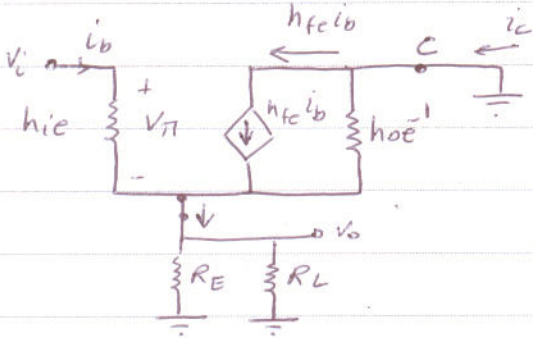 hfe ib
C
ic
vi
ib
+
hie
Vπ
hfe ib
hoe⁻¹
-
vo
RE
RL